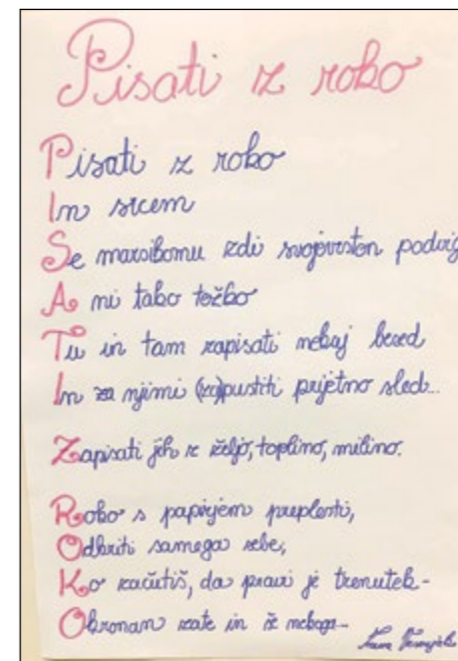 Pisati z roko
Pisati z roko
In srcem
Se marsikomu zdi svojevrsten podvig
A ni tako težko
Tu in tam zapisati nekaj besed
In za njimi (za)pustiti prijetno sled...
Zapisati jih z željo, toplino, milino.
Roko s papirjem preplesti,
Odkriti samega sebe,
Ko začutiš, da pravi je trenutek -
Okronan zate in še nekoga...